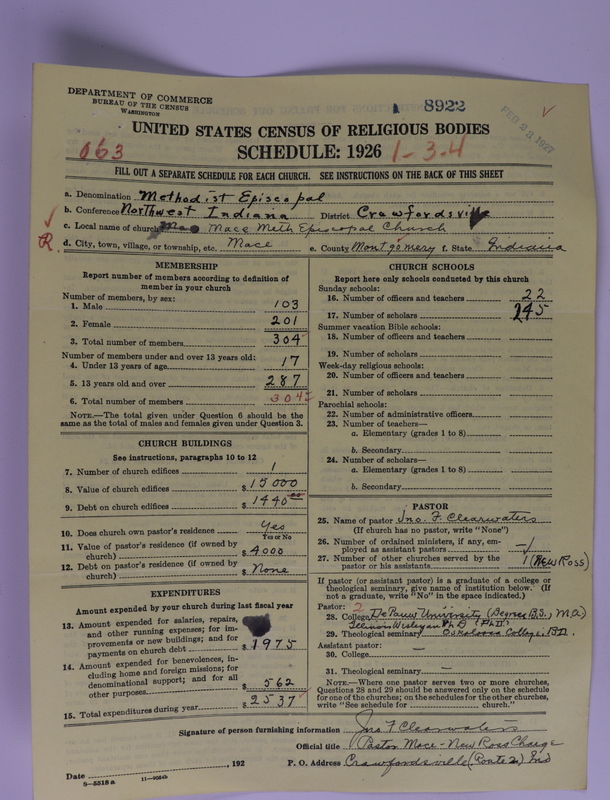 DEPARTMENT OF COMMERCE
BUREAU OF THE CENSUS
WASHINGTON
8922
FEB 23 1927
UNITED STATES CENSUS OF RELIGIOUS BODIES
063 SCHEDULE: 1926 1-3-4
FILL OUT A SEPARATE SCHEDULE FOR EACH CHURCH. SEE INSTRUCTIONS ON THE BACK OF THIS SHEET
a. Denomination Methodist Episcopal
b. Conference Northwest Indiana District Crawfordsville
c. Local name of church Mace Meth Episcopal Church
R. d. City, town, village, or township, etc. Mace e. County Montgomery f. State Indiana
MEMBERSHIP
Report number of members according to definition of
member in your church
Number of members, by sex:
1. Male 103
2. Female 201
3. Total number of members 304
Number of members under and over 13 years old:
4. Under 13 years of age 17
5. 13 years old and over 287
6. Total number of members 304
NOTE.—The total given under Question 6 should be the
same as the total of males and females given under Question 3.
CHURCH BUILDINGS
See instructions, paragraphs 10 to 12
7. Number of church edifices 1
8. Value of church edifices $15000
9. Debt on church edifices $1440 00
10. Does church own pastor's residence Yes
Yes or No
11. Value of pastor's residence (if owned by
church) $4000
12. Debt on pastor's residence (if owned by
church) $None
EXPENDITURES
Amount expended by your church during last fiscal year
13. Amount expended for salaries, repairs,
and other running expenses; for im-
provements or new buildings; and for
payments on church debt $1975
14. Amount expended for benevolences, in-
cluding home and foreign missions; for
denominational support; and for all
other purposes $562
15. Total expenditures during year $2537
CHURCH SCHOOLS
Report here only schools conducted by this church
Sunday schools:
16. Number of officers and teachers 22
17. Number of scholars 245
Summer vacation Bible schools:
18. Number of officers and teachers
19. Number of scholars
Week-day religious schools:
20. Number of officers and teachers
21. Number of scholars
Parochial schools:
22. Number of administrative officers
23. Number of teachers—
a. Elementary (grades 1 to 8)
b. Secondary
24. Number of scholars—
a. Elementary (grades 1 to 8)
b. Secondary
PASTOR
25. Name of pastor Jno. F. Clearwaters
(If church has no pastor, write "None")
26. Number of ordained ministers, if any, em-
ployed as assistant pastors —
27. Number of other churches served by the
pastor or his assistants 1 (New Ross)
If pastor (or assistant pastor) is a graduate of a college or
theological seminary, give name of institution below. (If
not a graduate, write "No" in the space indicated.)
Pastor: 2
28. College DePauw University (Degree B.S., M.A.)
Illinois Wesleyan Ph.D.
29. Theological seminary Oskaloosa College, B.D.
Assistant pastor:
30. College —
31. Theological seminary —
NOTE.—Where one pastor serves two or more churches,
Questions 28 and 29 should be answered only on the schedule
for one of the churches; on the schedules for the other churches,
write "See schedule for church."
Signature of person furnishing information Jno F Clearwaters
Official title Pastor Mace-New Ross Charge
Date , 192 P. O. Address Crawfordsville (Route 2) Ind
8-5518a